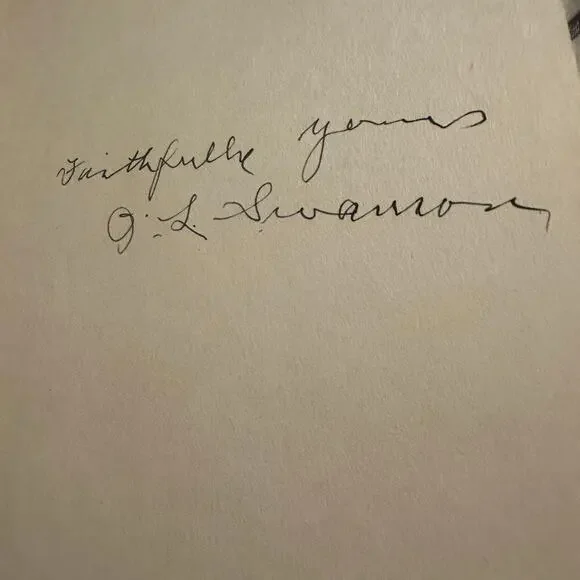 Faithfully yours
O. L. Swanson